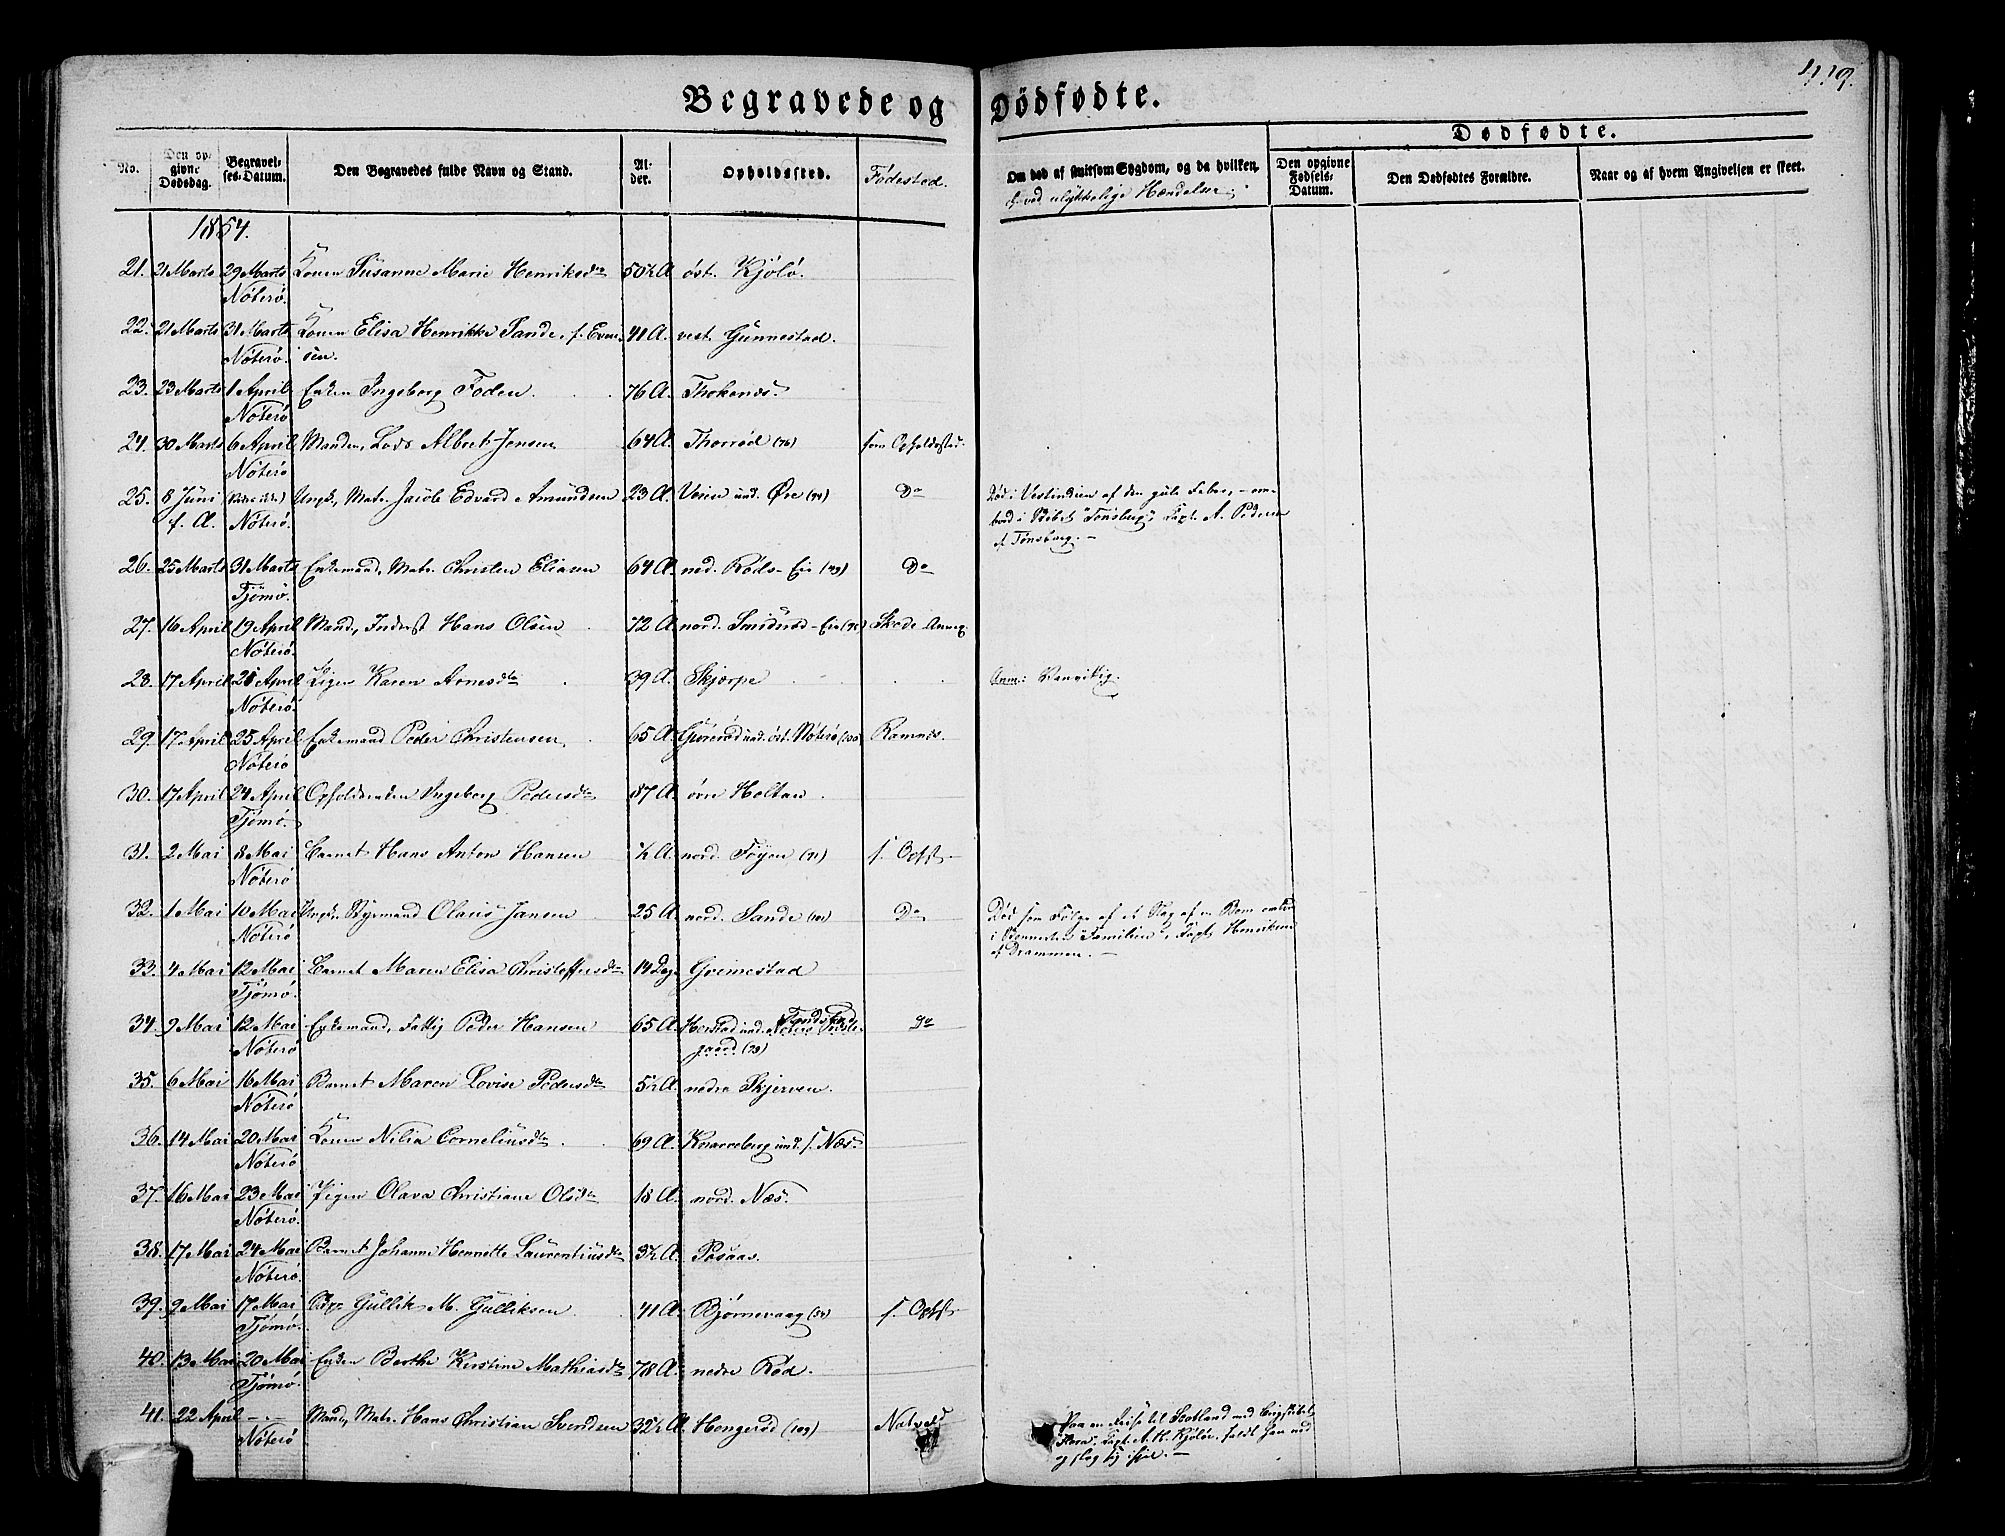 Begravede og Dødfødte.
119.
No.
Den opgivne Dødsdag.
Begravelses-Datum.
Den Begravedes fulde Navn og Stand.
Alder.
Opholdssted.
Fødested.
Om død af smitsom Sygdom, og da hvilken.
ved ulykkelige Hændelser;
Dødfødte.
Den opgivne Fødsels-Datum.
Den Dødfødtes Forældre.
Naar og af hvem Angivelsen er skeet.
1854.
21. 21 Marts 29 Marts Nöterö. Konen Susanne Marie Henriksdtr 50½ A. öst. Kjölö.
22. 21 Marts 31 Marts Nöterö. Konen Elisa Henrikke Sande, f. Evensen. 41 A. vest. Gunnestad.
23. 23 Marts 1 April Nöterö Enken Ingeborg Foden. 76 A. Thokenæs.
24. 30 Marts 6 April Nöterö Manden, Lods Albret Jensen 64 A. Thorröd (76) som Opholdssted.
25. 8 Juni f. A. Nöterö. Ungk., Matr. Jacob Edvard Amundsen 23 A. Veien und. Øre (94) Do Död i Vestindien af den gule Feber, - ombord i Skibet "Tönsberg", Capt. A. Pedersen af Tönsberg. -
26. 25 Marts 31 Marts Tjömö. Enkemand, Matr. Christen Eliasen 64 A. ned. Röds-Eie (49) Do
27. 16 April 19 April Nöterö. Mand, Inderst Hans Olsen 72 A. nord. Smidsröd-Eie Skode Annex
28. 17 April 21 April Nöterö. Pigen Karen Arnesdtr 39 A. Skjerpe Anm: Vanvittig.
29. 17 April 25 April Nöterö Enkemand Peder Christensen 65 A. und. öst. Nöterö Ramnæs.
30. 17 April 24 April Tjömö. Opholdsenken Ingeborg Pedersdtr 87 A. övre Holtan.
31. 2 Mai 8 Mai Nöterö Barnet Hans Anton Hansen ½ A. nord. Föyen (71) s. Opst.
32. 1 Mai 10 Mai Nöterö Ungk. Styrmand Olaus Jansen 25 A. nord. Sande (101) Do Död som Fölge af et Slag af en Bom ombord i Skonnerten "Familien", Capt. Henriksen af Drammen. -
33. 4 Mai 12 Mai Tjömö. Barnet Maren Elisa Christoffersdtr 14 Dage Grimestad
34. 9 Mai 12 Mai Nöterö Enkemand, Fattig Peder Hansen 65 A. Herstad und. Nöterö Prestegaard (23) Do
35. 6 Mai 16 Mai Nöterö Barnet Maren Lovise Pedersdtr 5½ A. nedre Skjerven.
36. 14 Mai 20 Mai Nöterö Konen Nilia Corneliusdtr 69 A. Knarreberg und. s. Næs.
37. 16 Mai 23 Mai Nöterö. Pigen Olava Christiane Olsdtr 18 A. nord. Næs.
38. 17 Mai 24 Mai Nöterö. Barnet Johanne Henrette Laurentiusdtr 3½ A. Rosaas.
39. 9 Mai 17 Mai Tjömö. Gullik M. Gulliksen 41 A. Bjørnevaag (54) s. Opst.
40. 13 Mai 20 Mai Tjömö. Enken Berthe Kirstine Mathiasdtr 78 A. nedre Röd.
41. 22 April -.- Nöterö Mand, Matr. Hans Christian Svendsen 32½ A. Hengeröd (109) Paa en Reise til Scotland med Brigskibet Flora, Capt. A. H. Kjölö, faldt han ned og slog sig ihjel. -